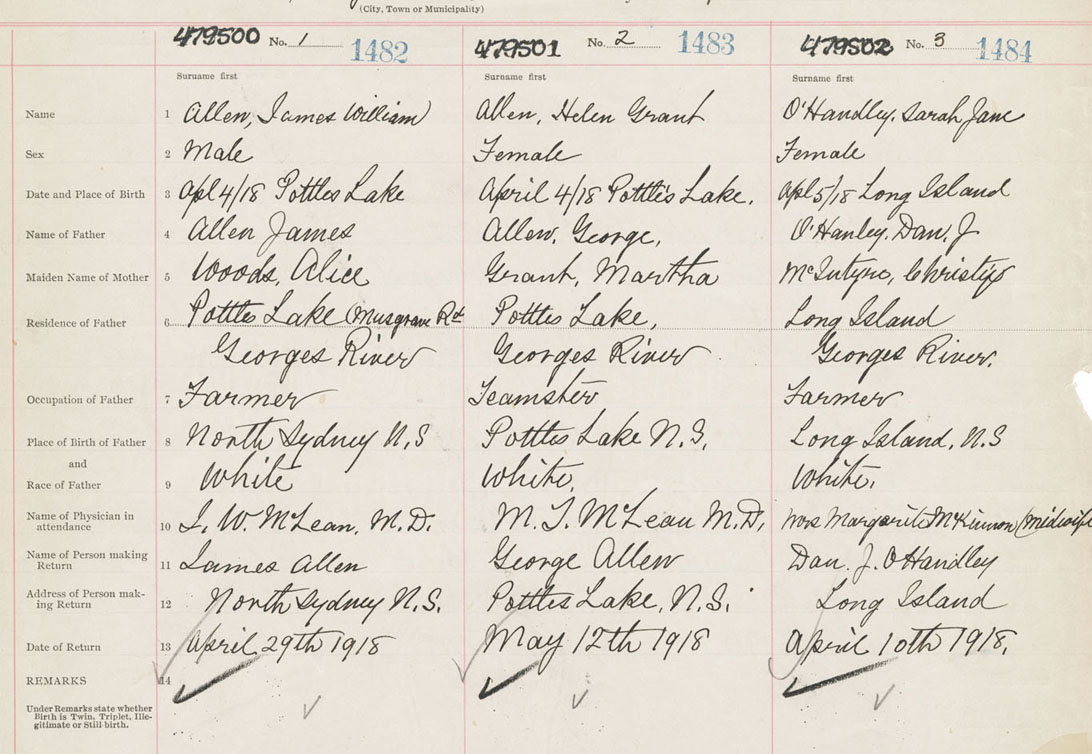 (City, Town or Municipality)
479500 No. 1 1482 479501 No. 2 1483 479502 No. 3 1484
Surname first Surname first Surname first
Name 1 Allen, James William Allen, Helen Grant O'Handley, Sarah Jane
Sex 2 Male Female Female
Date and Place of Birth 3 Apl 4/18 Pottles Lake April 4/18 Pottles Lake. Apl 5/18 Long Island
Name of Father 4 Allen James Allen, George, O'Hanley, Dan, J
Maiden Name of Mother 5 Woods, Alice Grant, Martha McIntyre, Christy
Residence of Father 6 Pottles Lake Musgrave Rd Pottles Lake, Long Island
Georges River Georges River Georges River.
Occupation of Father 7 Farmer Teamster Farmer
Place of Birth of Father 8 North Sydney N.S Pottles Lake N.S. Long Island, N.S
and
Race of Father 9 White White. White.
Name of Physician in
attendance 10 J. W. McLean, M.D. M. T. McLean M.D. Mrs Margarite McKinnon (midwife
Name of Person making
Return 11 James Allen George Allen Dan. J. O'Handley
Address of Person mak-
ing Return 12 North Sydney N.S. Pottles Lake, N.S. Long Island
Date of Return 13 April 29th 1918 May 12th 1918 April 10th 1918.
REMARKS 14
Under Remarks state whether
Birth is Twin, Triplet, Ille-
gitimate or Still-birth.